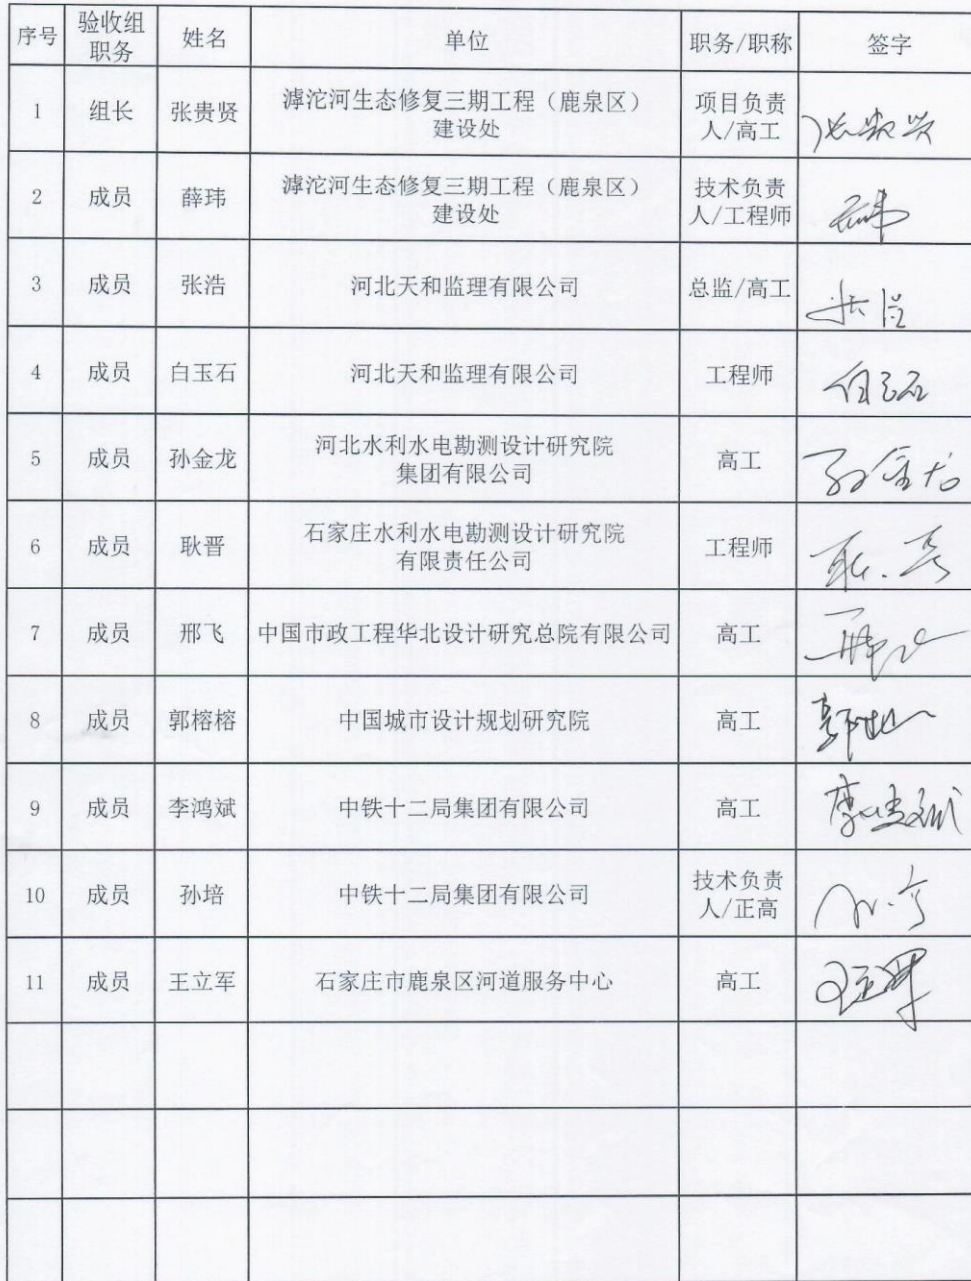 序号 验收组职务 姓名 单位 职务/职称 签字
1 组长 张贵贤 滹沱河生态修复三期工程（鹿泉区）建设处 项目负责人/高工 张贵贤
2 成员 薛玮 滹沱河生态修复三期工程（鹿泉区）建设处 技术负责人/工程师
3 成员 张浩 河北天和监理有限公司 总监/高工 张浩
4 成员 白玉石 河北天和监理有限公司 工程师 白玉石
5 成员 孙金龙 河北水利水电勘测设计研究院集团有限公司 高工 孙金龙
6 成员 耿晋 石家庄水利水电勘测设计研究院有限责任公司 工程师 耿晋
7 成员 邢飞 中国市政工程华北设计研究总院有限公司 高工
8 成员 郭榕榕 中国城市设计规划研究院 高工
9 成员 李鸿斌 中铁十二局集团有限公司 高工 李鸿斌
10 成员 孙培 中铁十二局集团有限公司 技术负责人/正高
11 成员 王立军 石家庄市鹿泉区河道服务中心 高工 王立军